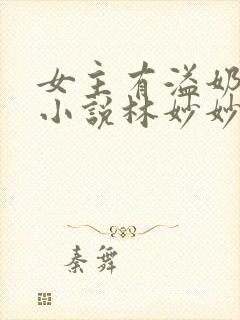 女主有溢奶
小說林妙妙
秦舞